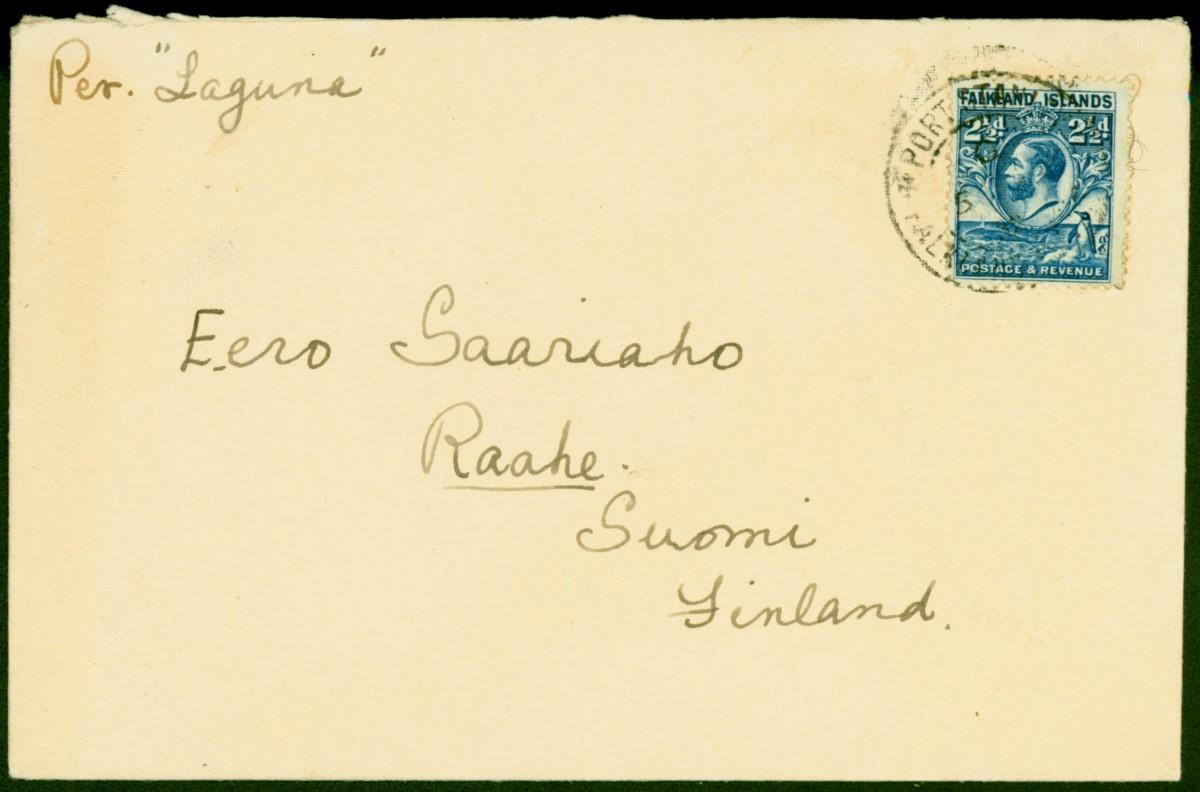 Per. "Laguna"
FALKLAND ISLANDS
2½d 2½d
POSTAGE & REVENUE
PORT STAN
FALKLAN
Eero Saariaho
Raahe.
Suomi
Finland.